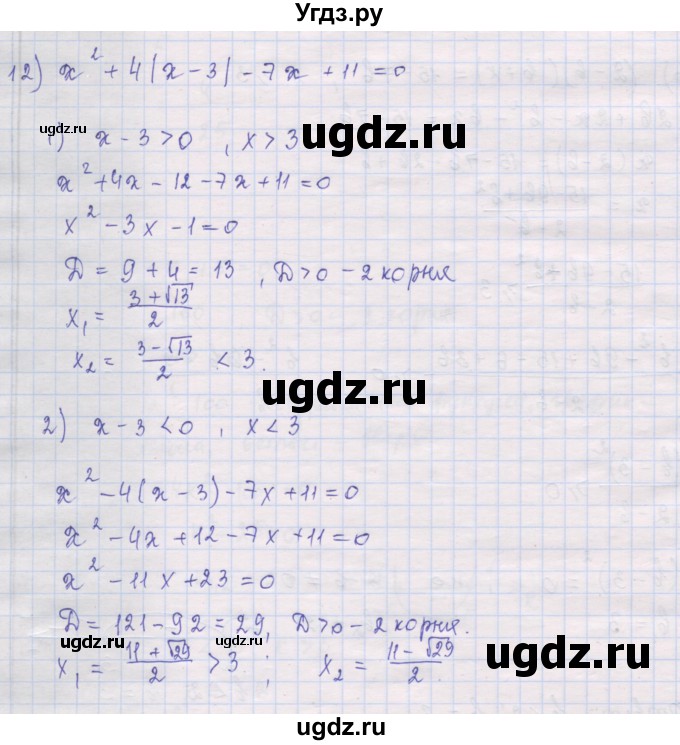 Угдз.ру
12) x² + 4|x - 3| - 7x + 11 = 0
ugdz.ru
1) x - 3 > 0 , x > 3
x² + 4x - 12 - 7x + 11 = 0
x² - 3x - 1 = 0
D = 9 + 4 = 13 , D > 0 - 2 корня
x₁ = (3 + √13)/2
x₂ = (3 - √13)/2 < 3.
ugdz.ru
ugdz.ru
2) x - 3 < 0 , x < 3
x² - 4(x - 3) - 7x + 11 = 0
ugdz.ru
x² - 4x + 12 - 7x + 11 = 0
x² - 11x + 23 = 0
D = 121 - 92 = 29, D > 0 - 2 корня.
ugdz.ru
x₁ = (11 + √29)/2 > 3 ; x₂ = (11 - √29)/2.
ugdz.ru
ugdz.ru
ugdz.ru